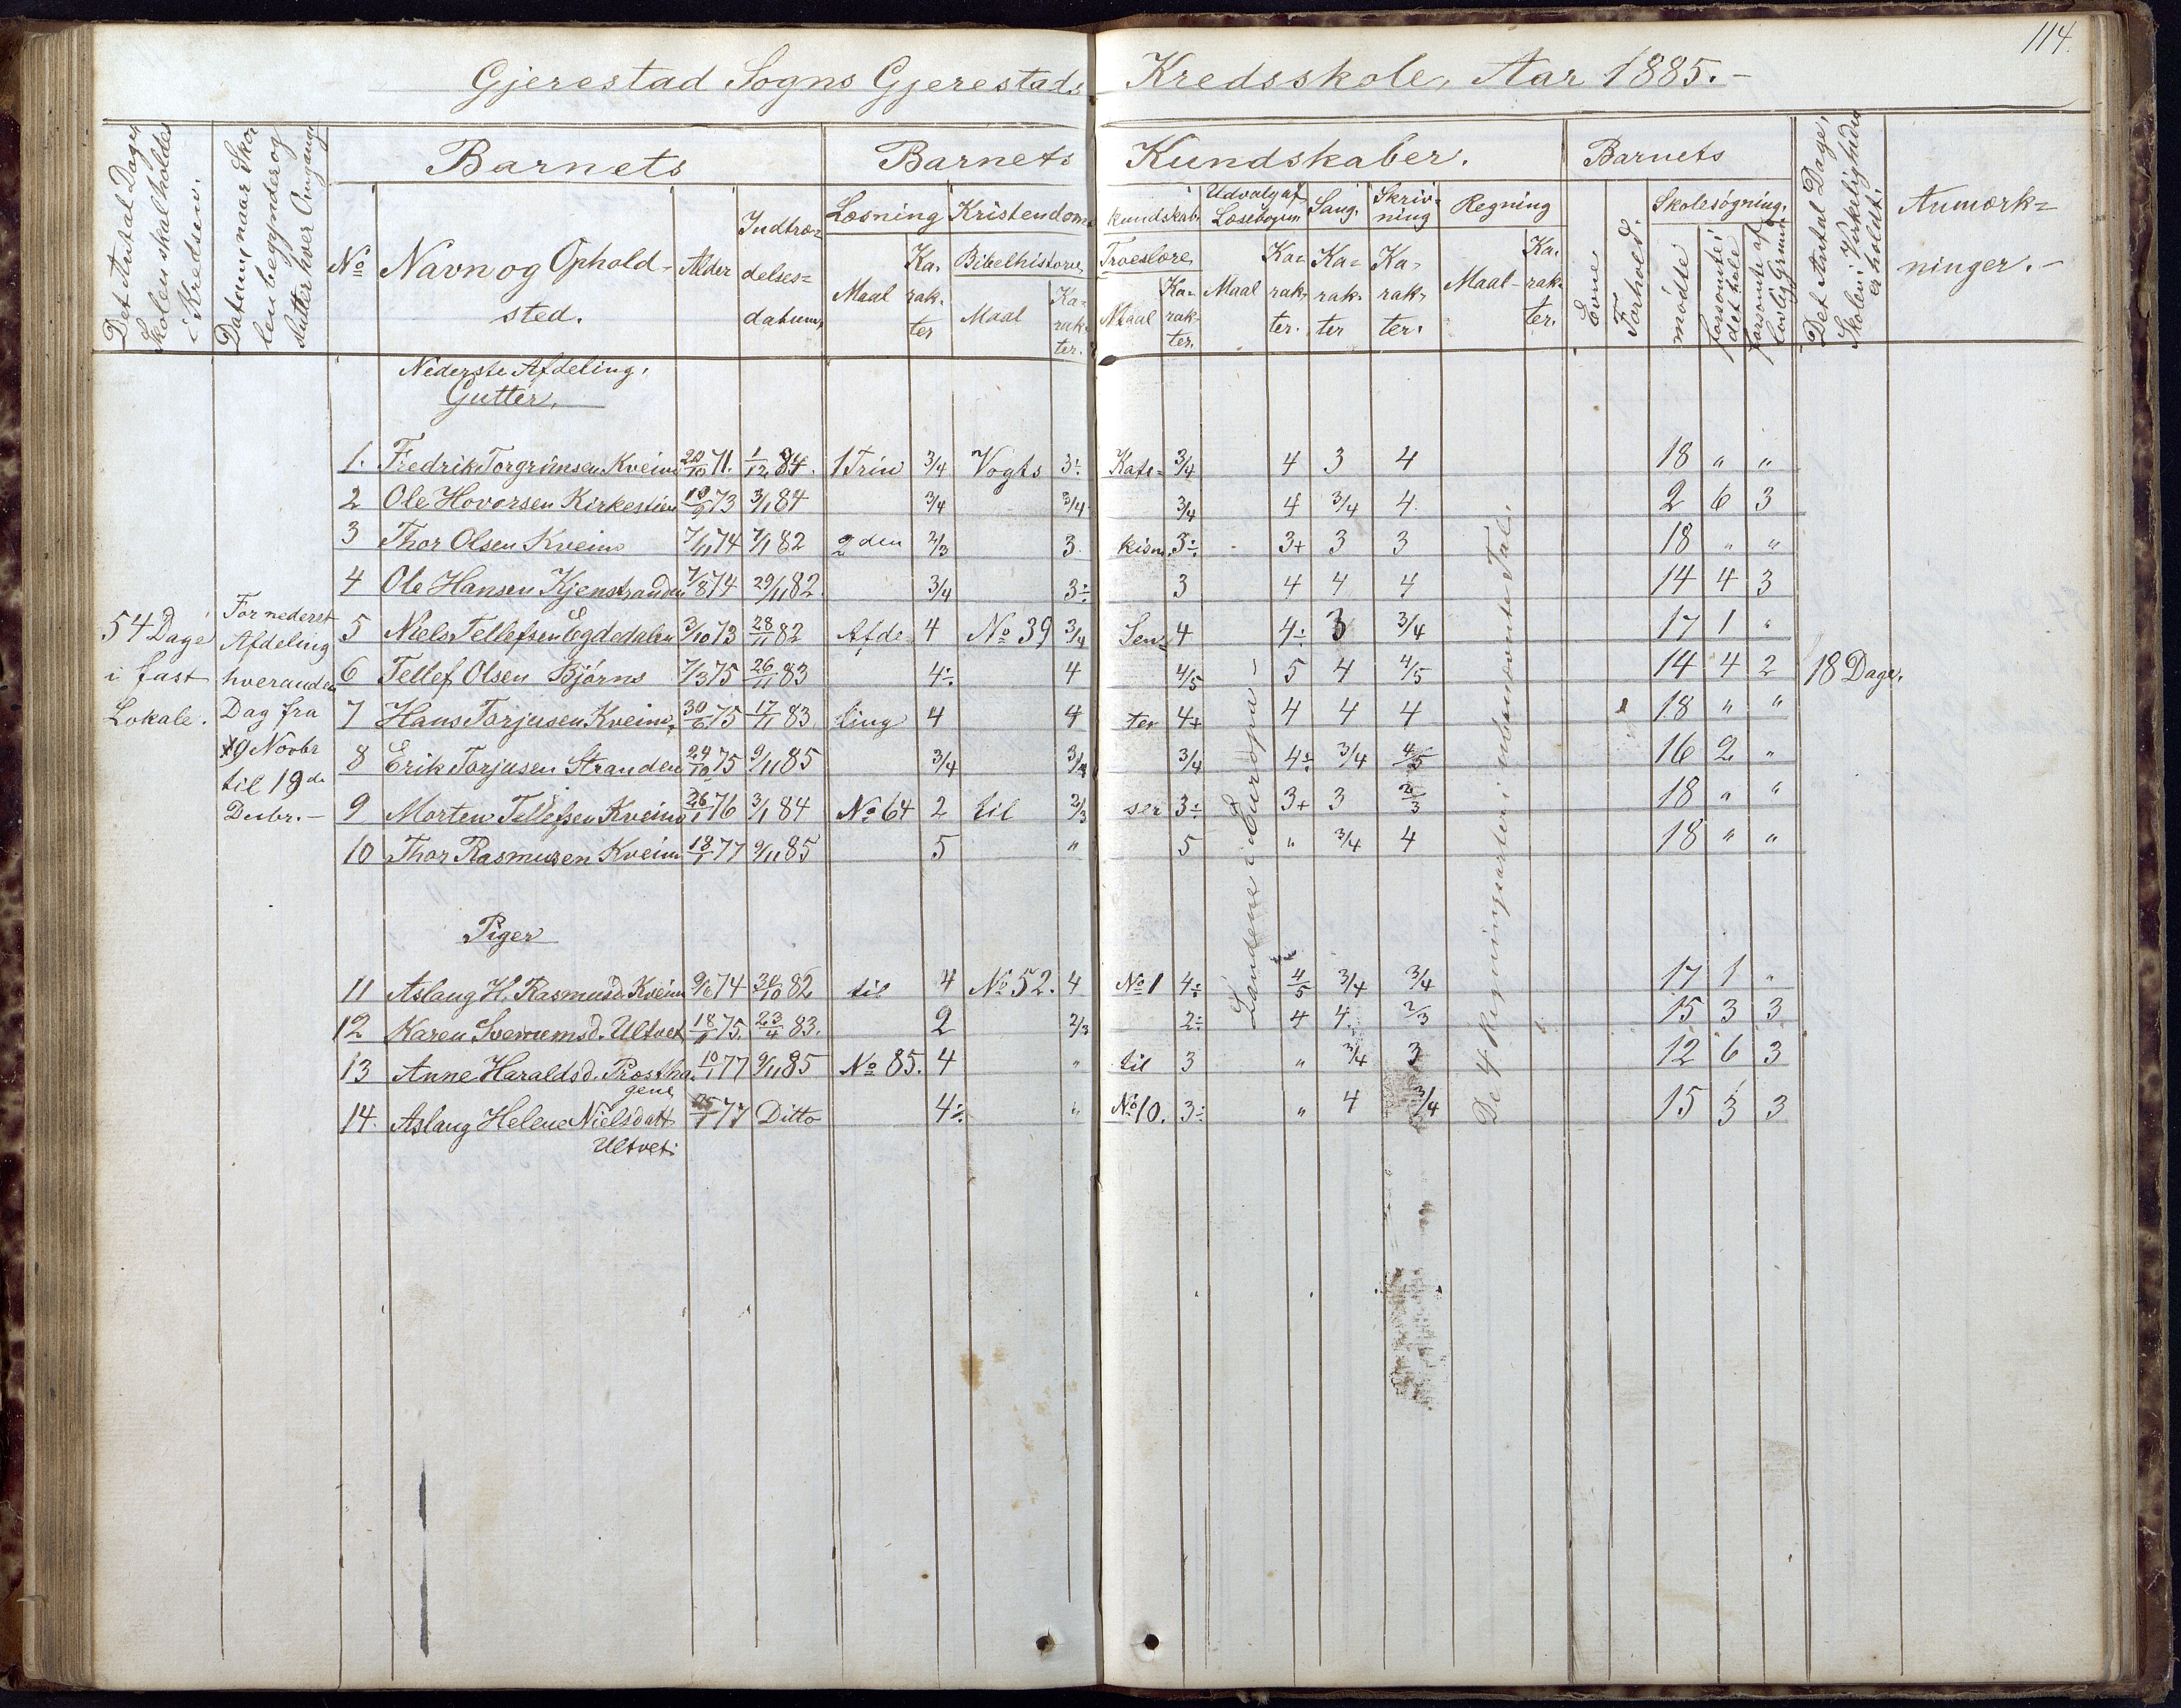 114.
Gjerestad Sogns Gjerestads Kredsskole, Aar 1885.-
Det Antal Dage, Skolen skal holdes i Kredsen.
Datum, naar Skolen begynder og slutter hver Omgang
Barnets
Barnets Kundskaber.
Barnets
Det Antal Dage, Skolen i Virkelighed er holdt.
Anmærkninger.-
No
Navn og Opholdsted.
Alder
Indtrædelsesdatum,
Læsning
Kristendomskundskab.
Udvalg af Læsebogen
Sang.
Skrivning
Regning
Evne
Forhold.
Skolesøgning.
Maal
Karakter
Bibelhistorie,
Maal
Karakter.
Troeslære,
Maal
Karakter.
Maal
Karakter.
Karakter
Karakter.
Maal-
Karakter.
mødte
forsømte i det hele
forsømte af lovlig Grund
Nederste Afdeling.
Gutter,
1. Fredrik Torgrimsen Kveim 20/10 71. 1/12 84. 1 Trin 3/4 Vogts 3÷ Kate= 3/4 4 3 4 18 " "
2 Ole Hovorsen Kirkestien 19/9 73 3/1 84 3/4 3/4 3/4 4 3/4 4. 2 6 3
3 Thor Olsen Kveim 7/11 74 7/1 82 2den 2/3 3. kism. 3÷ 3+ 3 3 18 " "
4 Ole Hansen Kjenstranden 7/8 74 29/11 82. 3/4 3÷ 3 4 4 4 14 4 3
5 Niels Tellefsen Egdedalen 3/10 73 28/11 82 Afde= 4 No 39 3/4 Sen= 4 4÷ 3 3/4 17 1 "
6 Tellef Olsen Bjørns 7/3 75 26/11 83 4÷ 4 4/5 5 4 4/5 14 4 2
7 Hans Torjusen Kveim, 30/6 75 17/11 83 ling 4 4 ter 4+ 4 4 4 18 " "
8 Erik Torjusen Stranden 24/10 75 9/11 85 3/4 3/4 3/4 4÷ 3/4 4/5 16 2 "
9 Morten Tellefsen Kveim 26/1 76 3/1 84 No 64 2 til 2/3 ser 3÷ 3+ 3 2/3 18 " "
10 Thor Rasmusen Kveim 18/1 77 9/11 85 5 " 5 " 3/4 4 18 " "
54 Dage
i fast
Lokale.
For nederst
Afdeling
hveranden
Dag fra
19 Novbr
til 19de
Decbr.-
18 Dage.
Landene i Europa -
De 4 Regningsarter i ubenævnte Tal.
Piger
11 Aslaug H. Rasmusd. Kveim 9/6 74 30/10 82 til 4 No 52. 4 No 1 4÷ 4/5 3/4 3/4 17 1 "
12 Karen Sverrumsd. Ultvet 18/1 75. 23/4 83. 2 2/3 2÷ 4 4. 2/3 15 3 3
13 Anne Haraldsd. Prosthagene 10/1 77 9/11 85 No 85. 4 " til 3 " 3/4 3 12 6 3
14. Aslaug Helene Nielsdatt Ultvet. 77 Ditto 4÷ " No 10. 3÷ " 4 3/4 15 3 3